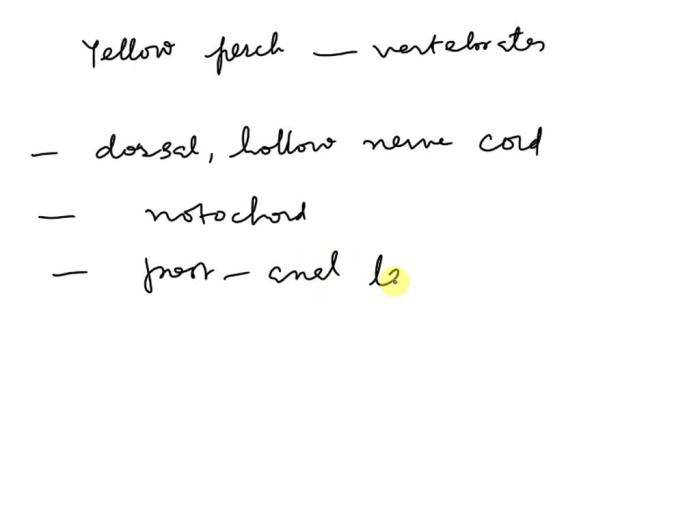 Yellow perch — vertebrates
— dorsal, hollow nerve cord
— notochord
— post - anal